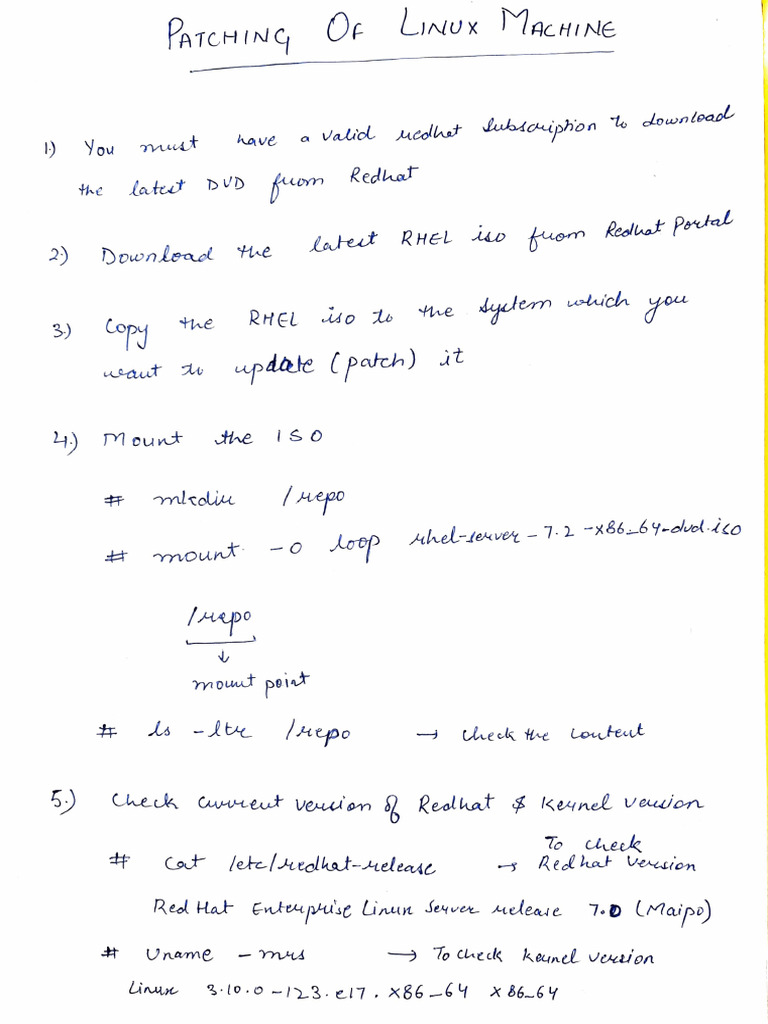 PATCHING OF LINUX MACHINE
1.) You must have a valid redhat subscription to download
the latest DVD from Redhat
2.) Download the latest RHEL iso from Redhat Portal
3.) Copy the RHEL iso to the system which you
want to update (patch) it
4.) Mount the ISO
# mkdir /repo
# mount -o loop rhel-server-7.2-x86_64-dvd.iso
/repo
↓
mount point
# ls -ltr /repo → check the content
5.) Check current version of Redhat & Kernel version
To check
# cat /etc/redhat-release → Redhat version
Red Hat Enterprise Linux Server release 7.0 (Maipo)
# uname -mrs → To check kernel version
Linux 3.10.0-123.el7.x86_64 x86_64